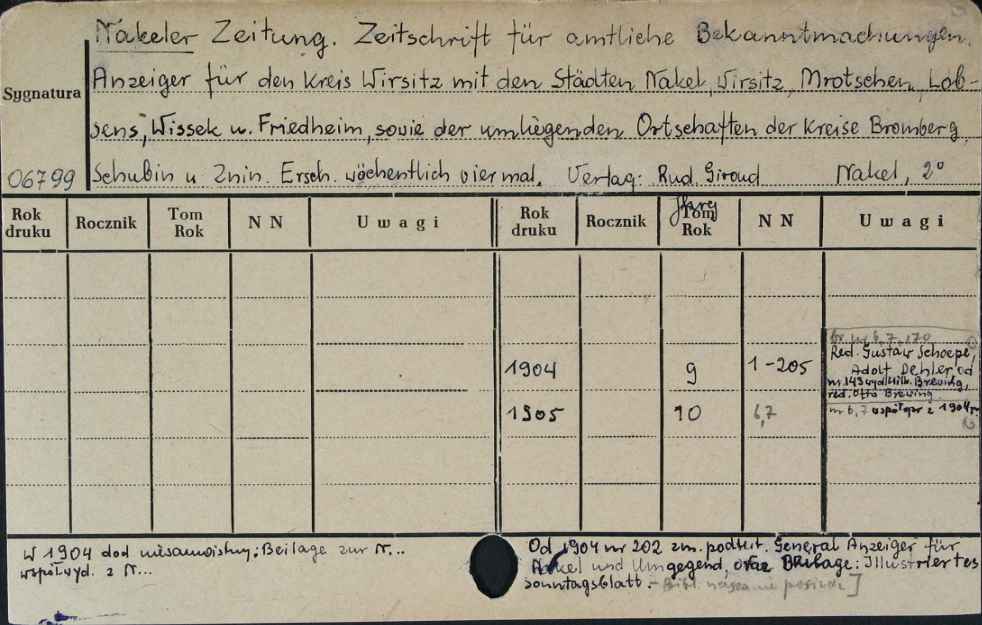 Nakeler Zeitung. Zeitschrift für amtliche Bekanntmachungen.
Anzeiger für den Kreis Wirsitz mit den Städten Nakel, Wirsitz, Mrotschen, Lob-
Sygnatura
sens, Wissek u. Friedheim, sowie der umliegenden Ortschaften der Kreise Bromberg,
06799 Schubin u Znin. Ersch. wöchentlich viermal. Verlag: Rud. Giroud Nakel, 2°
Rok druku Rocznik Tom Rok NN Uwagi Rok druku Rocznik Tom Rok NN Uwagi
br. nr 6, 7, 170
1904 9 1-205 Red. Gustav Schoepe,
Adolf Dehler, od
nr 143 wyd. Wilh. Brewing,
red. Otto Brewing
1905 10 6,7 nr 6,7 współopr z 1904 r.
W 1904 dod niesamoistny: Beilage zur N...
współwyd. z N...
Od 1904 nr 202 zm. podtyt. General Anzeiger für
Nakel und Umgegend, oraz Beilage: Illustriertes
Sonntagsblatt. -